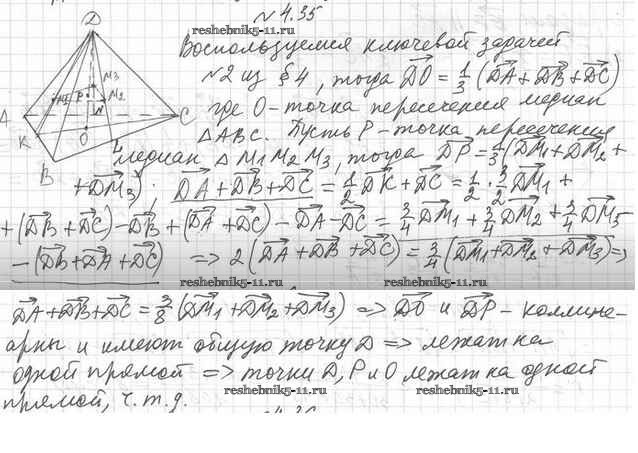 № 4.35
reshebnik5-11.ru
Воспользуемся ключевой задачей
№2 из §4, тогда DO = 1/3 (DA + DB + DC)
где O - точка пересечения медиан
△ABC. Пусть P - точка пересечения
медиан △M1M2M3, тогда DP = 1/3 (DM1 + DM2 +
+ DM3), DA + DB + DC = 1/2 DK + DC = 1/2 · 3/2 DM1 +
+ (DB + DC) - DB + (DA + DC) - DA - DC = 3/4 DM1 + 3/4 DM2 + 3/4 DM3
- (DB + DA + DC) => 2 (DA + DB + DC) = 3/4 (DM1 + DM2 + DM3) =>
reshebnik5-11.ru reshebnik5-11.ru
DA + DB + DC = 3/8 (DM1 + DM2 + DM3) => DO и DP - коллине-
арны и имеют общую точку D => лежат на
одной прямой => точки D, P и O лежат на одной
reshebnik5-11.ru reshebnik5-11.ru
прямой, ч.т.д.
D
M3
P
M2
A
C
O
K
L
B